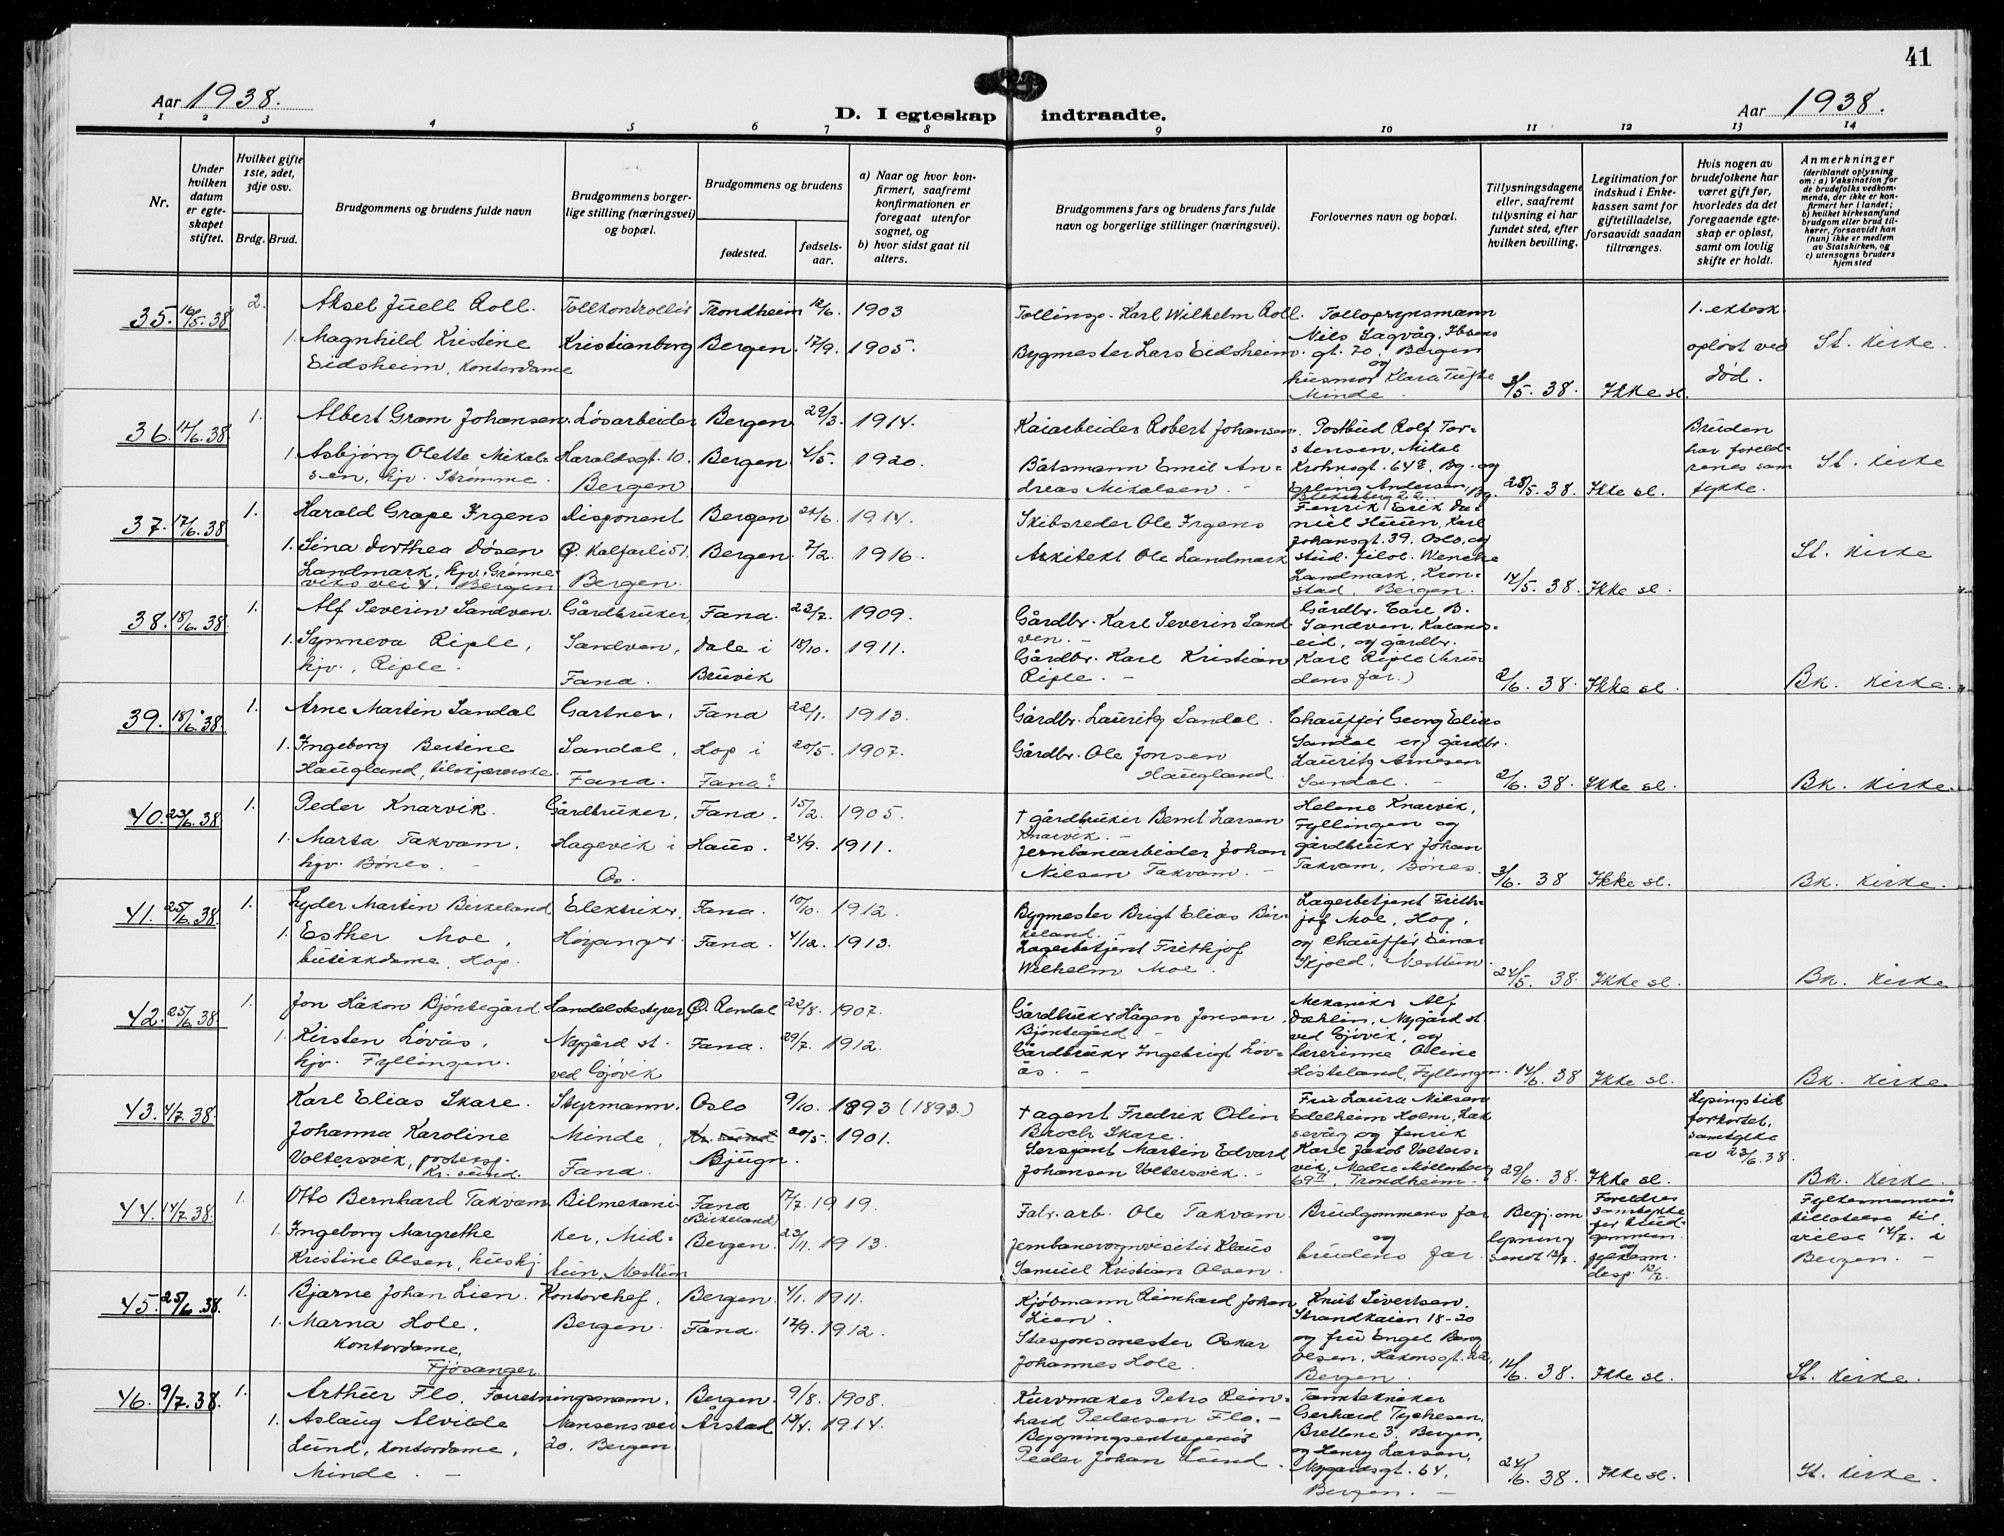 41
Aar 1938.
D. I egteskap indtraadte.
Aar 1938.
1 2 3 4 5 6 7 8 9 10 11 12 13 14
Nr.
Under hvilken datum er egteskapet stiftet.
Hvilket gifte 1ste, 2det, 3dje osv.
Brdg. Brud.
Brudgommens og brudens fulde navn
Brudgommens borgerlige stilling (næringsvei) og bopæl.
Brudgommens og brudens
fødested. fødselsaar.
a) Naar og hvor konfirmert, saafremt konfirmationen er foregaat utenfor sognet, og
b) hvor sidst gaat til alters.
Brudgommens fars og brudens fars fulde navn og borgerlige stillinger (næringsvei).
Forlovernes navn og bopæl.
Tillysningsdagene eller, saafremt tillysning ei har fundet sted, efter hvilken bevilling.
Legitimation for indskud i Enkekassen samt for giftetilladelse, forsaavidt saadan tiltrænges.
Hvis nogen av brudefolkene har været gift før, hvorledes da det foregaaende egteskap er opløst, samt om lovlig skifte er holdt.
Anmerkninger
(deriblandt oplysning om: a) Vaksination for de brudefolks vedkommende, der ikke er konfirmert her i landet; b) hvilket kirkesamfund brudgom eller brud tilhører, forsaavidt han (hun) ikke er medlem av Statskirken, og c) utensogns bruders hjemsted
35. 16/5.38 2. Aksel Juell Roll. Tollkontrollør Trondheim 12/6. 1903
1. Magnhild Kristine Kristianborg Bergen. 17/9. 1905.
Eidsheim, Kontordame
Tollinsp. Karl Wilhelm Roll.
Bygmester Lars Eidsheim.
Tollopsynsmann
Nils Sagvåg, Ibsens
gt. 70. Bergen
og
husmor Klara Tufte
Minde.
3/5. 38. Ikke sl.
1. ektesk
opløst ved
død.
St. Kirke.
36. 17/6.38 1. Albert Gram Johansen. Løsarbeider Bergen 29/3. 1914.
1. Asbjørg Olette Mikal- Haraldsgt. 10. Bergen. 4/5. 1920.
sen, hjv. Strømme. Bergen
Kaiarbeider Robert Johansen.
Båtsmann Emil An-
dreas Mikalsen. -
Postbud Rolf Tor-
stensen, Mikal
Krohnsgt. 64, Bg. og
Erling Andersen,
28/5. 38. Ikke sl.
Bruden
har foreld-
renes sam
tykke.
St. Kirke
37. 17/6.38 1. Harald Grape Irgens Disponent Bergen 21/6. 1914.
1. Lina Dorthea Døsen Ø. Kalfarli 51 Bergen. 7/2. 1916.
Landmark, hjv. Grønne- Bergen.
viksvei 4. Bergen
Skibsreder Ole Irgens
Arkitekt Ole Landmark
Fenrik Erik Da-
niel Huun, Karl
Johansgt. 39. Oslo, og
stud. filol. Wenche
Landmark, Kron-
stad, Bergen.
14/5. 38. Ikke sl.
St. Kirke
38. 18/6.38 1. Alf Severin Sandven. Gårdbruker, Fana. 23/7. 1909.
1. Synneva Riple, Sandven, Dale i 18/10. 1911.
hjv., Riple. Fana. Bruvik
Gårdbr. Karl Severin Sand-
ven. -
Gårdbr. Karl Kristian
Riple. -
Gårdbr. Carl B.
Sandven, Kaland-
seid, og gårdbr.
Karl Riple (bru-
dens far.)
2/6. 38. Ikke sl.
Bk. Kirke.
39. 18/6.38 1. Arne Martin Sandal Gartner. Fana 22/1. 1913.
1. Ingeborg Bertine Sandal, Hop i 20/5. 1907.
Haugland, tilskjærerske Fana. Fana?
Gårdbr. Lauritz Sandal.
Gårdbr. Ole Jonsen
Haugland
Chauffør Georg Elias
Sandal og gårdbr.
Lauritz Arnesen
Sandal. -
2/6. 38. Ikke sl.
Bk. Kirke.
40. 23/6.38 1. Peder Knarvik. Gårdbruker, Fana. 15/2. 1905.
1. Marta Takvam. Hagevik i Haus. 24/9. 1911.
hjv. Bønes. - Os.
† gårdbruker Bernt Larsen
Knarvik. -
Jernbanearbeider Johan
Nielsen Takvam. -
Helene Knarvik,
Fyllingen og
gårdbruker Johan
Takvam, Bønes.
3/6. 38 Ikke sl.
Bk. Kirke.
41. 25/6.38 1. Lyder Martin Birkeland Elektriker, Fana. 10/10. 1912.
1. Esther Moe, Høyanger. Fana. 4/12. 1913.
butikkdame, Hop.
Bygmester Brigt Elias Bir-
keland. -
Lagerbetjent Frithjof
Wilhelm Moe.
Lagerbetjent Frith-
jof Moe, Hop,
og Chauffør Einar
Skjold, Nesttun.
24/5. 38. Ikke sl.
Bk. Kirke
42. 25/6.38 1. Jon Håkon Bjøntegård Handelsbestyrer Ø. Rendal 22/8. 1907.
1. Kirsten Løvås, Nygård st. Fana. 29/7. 1912.
hjv. Fyllingen. ved Gjøvik
Gårdbruker Hågen Jonsen
Bjøntegård -
Gårdbruker Ingebrigt Løv-
ås. -
Mekaniker Alf
Dæhlin, Nygård st.
ved Gjøvik, og
lærerinne Oline
Hesteland, Fyllingen.
14/6. 38 Ikke sl.
Bk. Kirke.
43. 4/7.38. Karl Elias Skare. Styrmann, Oslo 9/10. 1893 (1893.)
Johanna Karoline Minde, Kr. sund 20/5. 1901.
Voltersvik, posteksp. Fana. Bjugn.
Kr. sund.
† agent Fredrik Olin
Broch Skare.
Sersjant Martin Edvard
Johansen Voltersvik. -
Fru Laura Nielsen
Edelheim Holm, Lak
sevåg og fenrik
Karl Jakob Volters-
vik, Nedre Møllenberg
69, Trondheim. -
29/6. 38. Ikke sl.
Lysingstid
forkortet,
samtykke
av 23/6.38.
Bk. Kirke.
44. 14/7.38. 1. Otto Bernhard Takvam Bilmekani- Fana 17/7. 1919.
(Birkeland)
1. Ingeborg Margrethe ker, Mid- Bergen. 23/11. 1913.
Kristine Olsen, hushj. tun, Nesttun
Fabr. arb. Ole Takvam.
Jernbanevognvisitør Klaus
Samuel Kristian Olsen.
Brudgommens far
og
brudens far.
Begj. om
lysning
sendt 12/7.
Foreldres
samtykke
for brud-
gommen
og
fylkesm.
desp. 12/7.
Fylkesmannens
tillatelse til
vielse 14/7. i
Bergen. -
45. 25/6.38. 1. Bjarne Johan Lien. Kontorchef, Bergen. 4/1. 1911.
1. Marna Hole. Bergen. Fana. 17/9. 1912.
Kontordame,
Fjøsanger.
Kjøbmann Reinhard Johan
Lien.
Stasjonsmester Oskar
Johannes Hole.
Knut Sivertsen.
Strandkaien 18-20
og fru Engel Berg
Olsen, Håkonsgt. 22,
Bergen.
11/6. 38. Ikke sl.
St. Kirke.
46. 9/7.38. 1. Arthur Flo. Forretningsmann. Bergen. 9/8. 1908.
1. Aslaug Alvilde Nansensvei Årstad 13/4. 1914.
Lund, Kontordame, 20. Bergen.
Minde. -
Kurvmaker Petro Rein-
hard Pedersen Flo. -
Bygningsentreprenør
Peder Johan Lund.
Tanntekniker
Gerhard Tychesen,
Brettene 3, Bergen,
og Henry Larsen,
Nygårdsgt. 64,
Bergen. -
24/6. 38. Ikke sl.
St. Kirke.